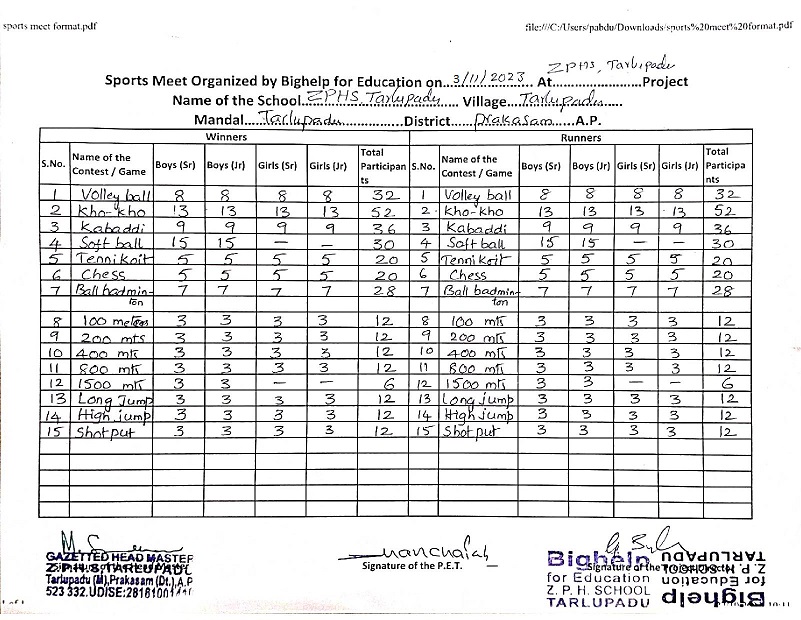 sports meet format.pdf file:///C:/Users/pabdu/Downloads/sports%20meet%20format.pdf
ZPHS, Tarlupadu
Sports Meet Organized by Bighelp for Education on...3/11/2023. At.....................Project
Name of the School...ZPHS, Tarlupadu.... Village...Tarlupadu.....
Mandal....Tarlupadu...............District.....Prakasam.....A.P.
Winners Runners
S.No. Name of the Contest / Game Boys (Sr) Boys (Jr) Girls (Sr) Girls (Jr) Total Participan ts S.No. Name of the Contest / Game Boys (Sr) Boys (Jr) Girls (Sr) Girls (Jr) Total Participa nts
1 Volley ball 8 8 8 8 32 1 Volley ball 8 8 8 8 32
2 Kho-kho 13 13 13 13 52 2 Kho-kho 13 13 13 13 52
3 Kabaddi 9 9 9 9 36 3 Kabaddi 9 9 9 9 36
4 Soft ball 15 15 — — 30 4 Soft ball 15 15 — — 30
5 Tennikoit 5 5 5 5 20 5 Tennikoit 5 5 5 5 20
6 Chess 5 5 5 5 20 6 Chess 5 5 5 5 20
7 Ball badmin- 7 7 7 7 28 7 Ball badmin- 7 7 7 7 28
ton ton
8 100 meters 3 3 3 3 12 8 100 mts 3 3 3 3 12
9 200 mts 3 3 3 3 12 9 200 mts 3 3 3 3 12
10 400 mts 3 3 3 3 12 10 400 mts 3 3 3 3 12
11 800 mts 3 3 3 3 12 11 800 mts 3 3 3 3 12
12 1500 mts 3 3 — — 6 12 1500 mts 3 3 — — 6
13 Long Jump 3 3 3 3 12 13 Long jump 3 3 3 3 12
14 High jump 3 3 3 3 12 14 High jump 3 3 3 3 12
15 Shot put 3 3 3 3 12 15 Shot put 3 3 3 3 12
GAZETTED HEAD MASTER
Z.P.H.S, TARLUPADU
Tarlupadu (M), Prakasam (Dt.), A.P
523 332. UDISE:28181001
Signature of the P.E.T.
Bighelp
for Education
Z. P. H. SCHOOL
TARLUPADU
Signature of the
Bighelp
for Education
Z. P. H. SCHOOL
TARLUPADU
1 of 1